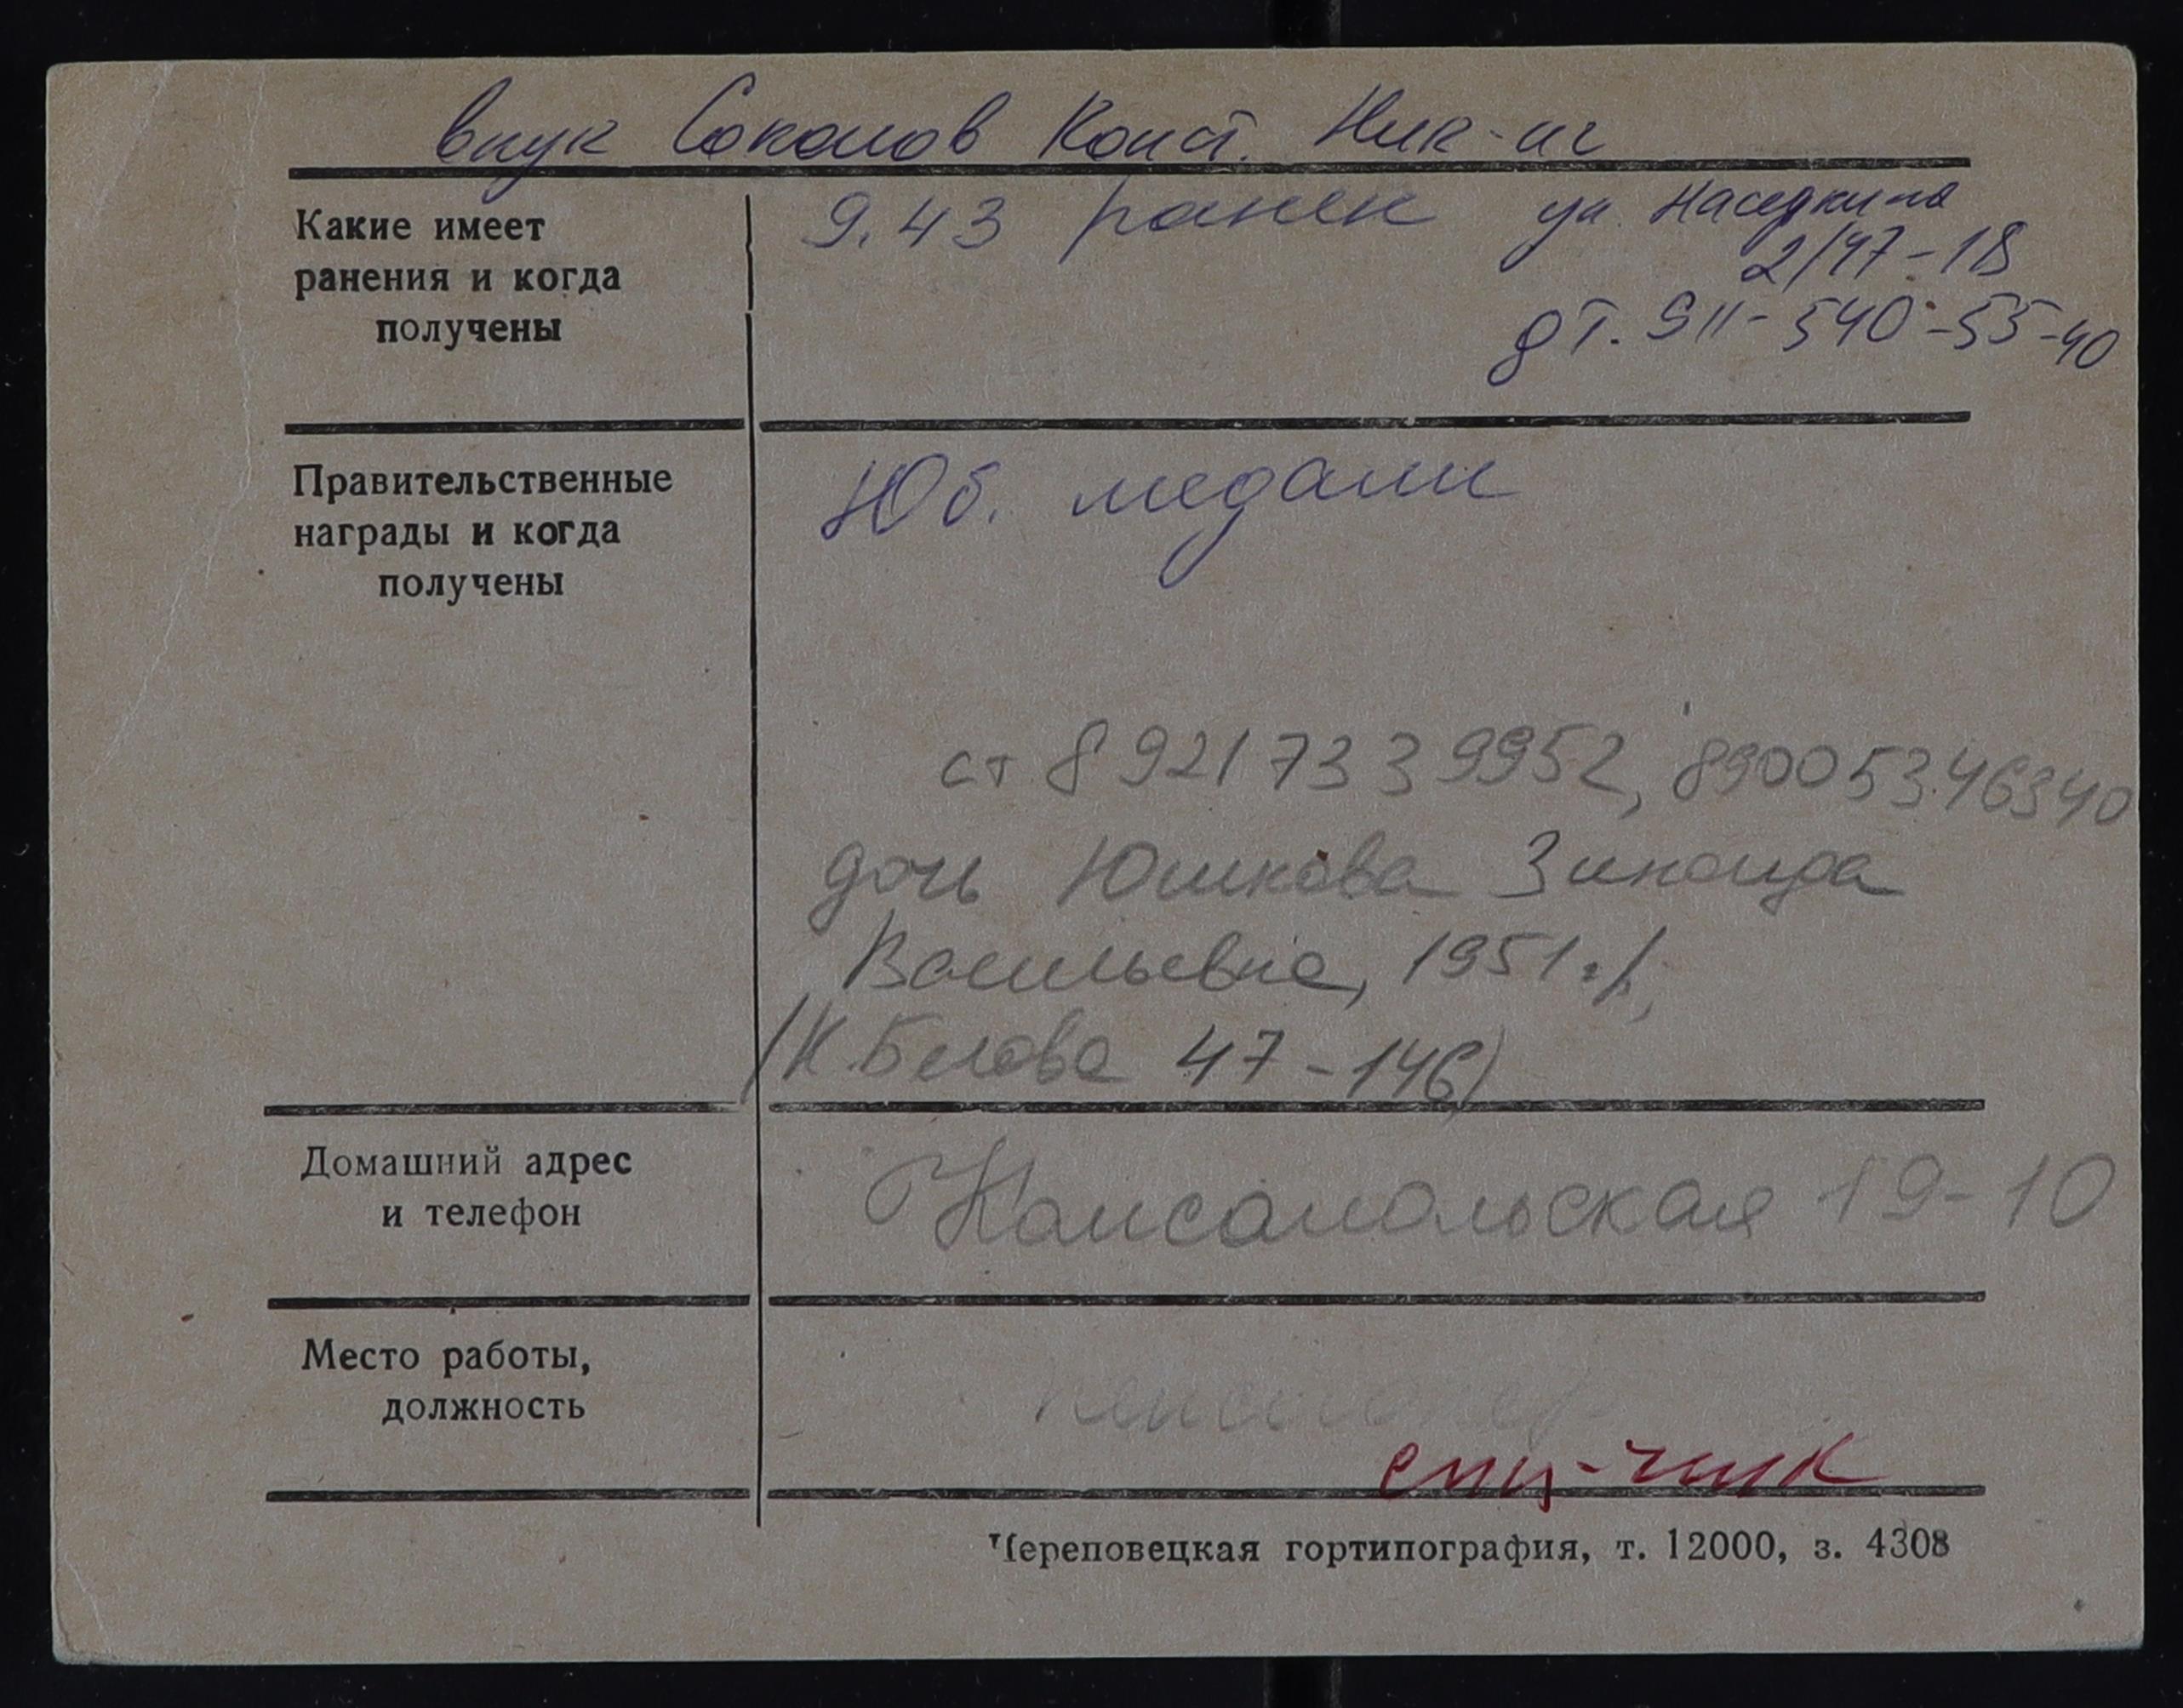 внук Соколов Конст. Ник-ич
Какие имеет
ранения и когда
получены
9.43 ранен
ул. Наседкина
2/47-18
дт. 911-540-55-40
Правительственные
награды и когда
получены
Юб. медали
ст 89217339952, 89005346340
дочь Юшкова Зинаида
Васильевна, 1951 г.р,
(К.Белова 47-146)
Домашний адрес
и телефон
Комсомольская 19-10
Место работы,
должность
пенсионер
Череповецкая гортипография, т. 12000, з. 4308